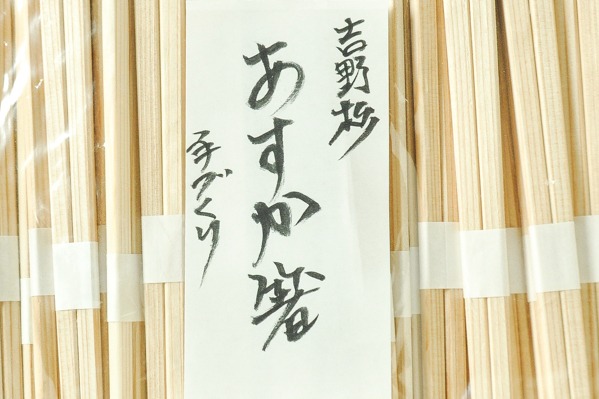 吉野杉
あすか箸
手づくり